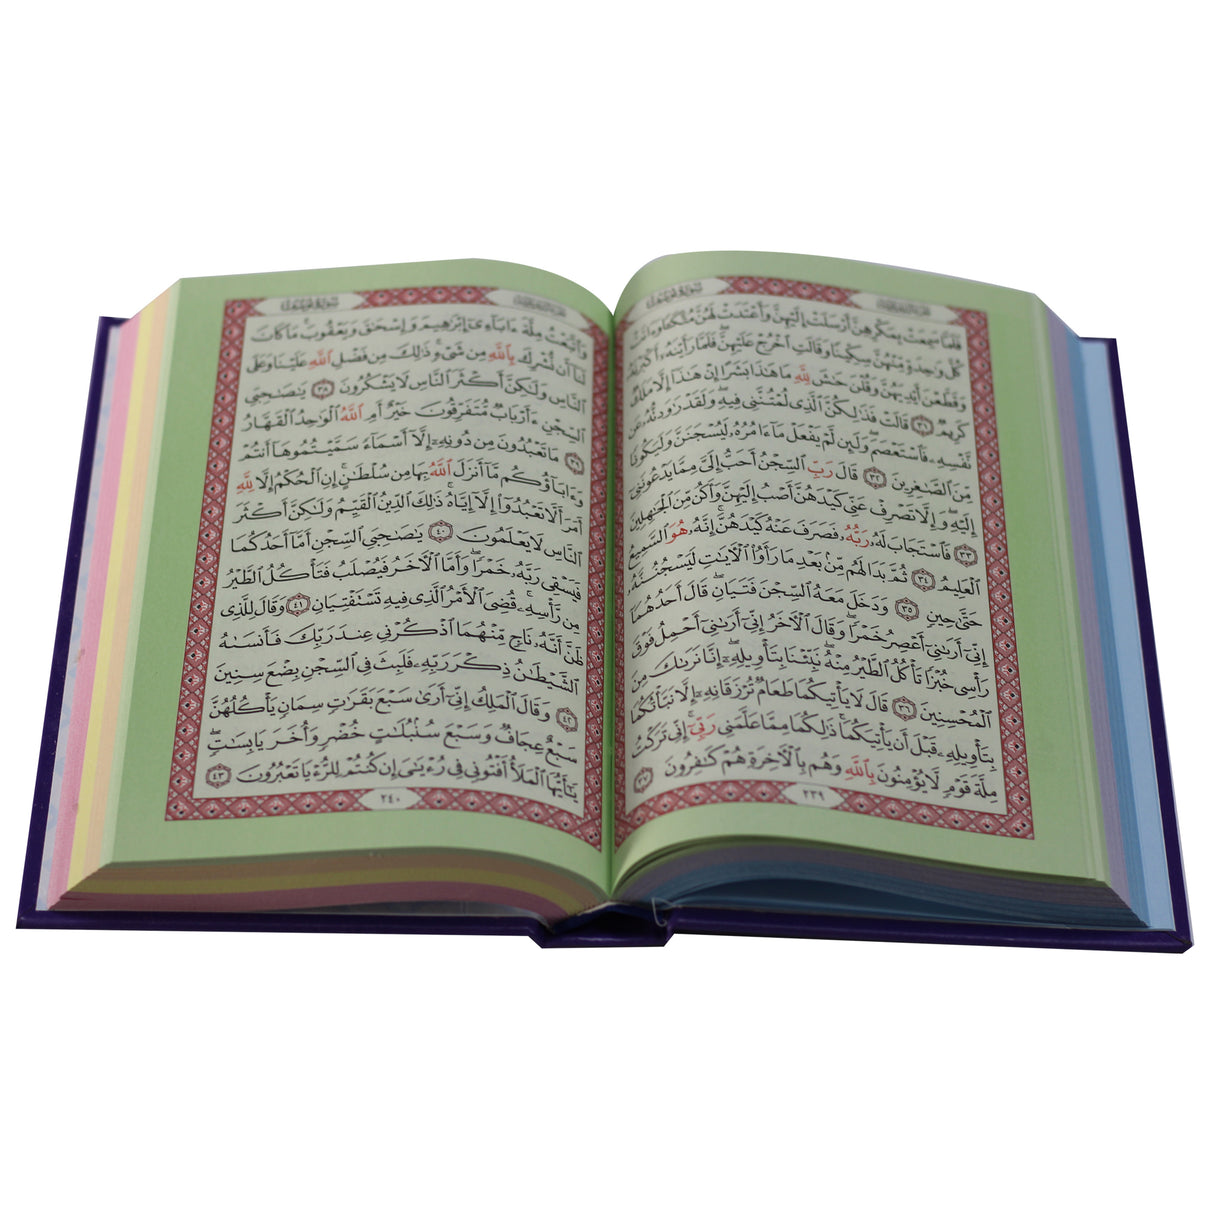 سُورَةُ يُوسُفَ
فَلَمَّا سَمِعَتْ بِمَكْرِهِنَّ أَرْسَلَتْ إِلَيْهِنَّ وَأَعْتَدَتْ لَهُنَّ مُتَّكَـًٔا وَءَاتَتْ
كُلَّ وَٰحِدَةٍ مِّنْهُنَّ سِكِّينًا وَقَالَتِ ٱخْرُجْ عَلَيْهِنَّ ۖ فَلَمَّا رَأَيْنَهُۥٓ أَكْبَرْنَهُۥ
وَقَطَّعْنَ أَيْدِيَهُنَّ وَقُلْنَ حَٰشَ لِلَّهِ مَا هَٰذَا بَشَرًا إِنْ هَٰذَآ إِلَّا مَلَكٌ
كَرِيمٌ ٣١ قَالَتْ فَذَٰلِكُنَّ ٱلَّذِى لُمْتُنَّنِى فِيهِ ۖ وَلَقَدْ رَٰوَدتُّهُۥ عَن
نَّفْسِهِۦ فَٱسْتَعْصَمَ ۖ وَلَئِن لَّمْ يَفْعَلْ مَآ ءَامُرُهُۥ لَيُسْجَنَنَّ وَلَيَكُونًا
مِّنَ ٱلصَّٰغِرِينَ ٣٢ قَالَ رَبِّ ٱلسِّجْنُ أَحَبُّ إِلَىَّ مِمَّا يَدْعُونَنِىٓ
إِلَيْهِ ۖ وَإِلَّا تَصْرِفْ عَنِّى كَيْدَهُنَّ أَصْبُ إِلَيْهِنَّ وَأَكُن مِّنَ ٱلْجَٰهِلِينَ
٣٣ فَٱسْتَجَابَ لَهُۥ رَبُّهُۥ فَصَرَفَ عَنْهُ كَيْدَهُنَّ ۚ إِنَّهُۥ هُوَ ٱلسَّمِيعُ
ٱلْعَلِيمُ ٣٤ ثُمَّ بَدَا لَهُم مِّنۢ بَعْدِ مَا رَأَوُا۟ ٱلْـَٔايَٰتِ لَيَسْجُنُنَّهُۥ
حَتَّىٰ حِينٍ ٣٥ وَدَخَلَ مَعَهُ ٱلسِّجْنَ فَتَيَانِ ۖ قَالَ أَحَدُهُمَآ
إِنِّىٓ أَرَىٰنِىٓ أَعْصِرُ خَمْرًا ۖ وَقَالَ ٱلْـَٔاخَرُ إِنِّىٓ أَرَىٰنِىٓ أَحْمِلُ فَوْقَ
رَأْسِى خُبْزًا تَأْكُلُ ٱلطَّيْرُ مِنْهُ ۖ نَبِّئْنَا بِتَأْوِيلِهِۦٓ ۖ إِنَّا نَرَىٰكَ مِنَ
ٱلْمُحْسِنِينَ ٣٦ قَالَ لَا يَأْتِيكُمَا طَعَامٌ تُرْزَقَانِهِۦٓ إِلَّا نَبَّأْتُكُمَا
بِتَأْوِيلِهِۦ قَبْلَ أَن يَأْتِيَكُمَا ۚ ذَٰلِكُمَا مِمَّا عَلَّمَنِى رَبِّىٓ ۚ إِنِّى تَرَكْتُ
مِلَّةَ قَوْمٍ لَّا يُؤْمِنُونَ بِٱللَّهِ وَهُم بِٱلْـَٔاخِرَةِ هُمْ كَٰفِرُونَ ٣٧
٢٣٩
سُورَةُ يُوسُفَ
وَٱتَّبَعْتُ مِلَّةَ ءَابَآءِىٓ إِبْرَٰهِيمَ وَإِسْحَٰقَ وَيَعْقُوبَ ۚ مَا كَانَ
لَنَآ أَن نُّشْرِكَ بِٱللَّهِ مِن شَىْءٍ ۚ ذَٰلِكَ مِن فَضْلِ ٱللَّهِ عَلَيْنَا وَعَلَى
ٱلنَّاسِ وَلَٰكِنَّ أَكْثَرَ ٱلنَّاسِ لَا يَشْكُرُونَ ٣٨ يَٰصَٰحِبَىِ
ٱلسِّجْنِ ءَأَرْبَابٌ مُّتَفَرِّقُونَ خَيْرٌ أَمِ ٱللَّهُ ٱلْوَٰحِدُ ٱلْقَهَّارُ
٣٩ مَا تَعْبُدُونَ مِن دُونِهِۦٓ إِلَّآ أَسْمَآءً سَمَّيْتُمُوهَآ أَنتُمْ
وَءَابَآؤُكُم مَّآ أَنزَلَ ٱللَّهُ بِهَا مِن سُلْطَٰنٍ ۚ إِنِ ٱلْحُكْمُ إِلَّا لِلَّهِ ۚ
أَمَرَ أَلَّا تَعْبُدُوٓا۟ إِلَّآ إِيَّاهُ ۚ ذَٰلِكَ ٱلدِّينُ ٱلْقَيِّمُ وَلَٰكِنَّ أَكْثَرَ
ٱلنَّاسِ لَا يَعْلَمُونَ ٤٠ يَٰصَٰحِبَىِ ٱلسِّجْنِ أَمَّآ أَحَدُكُمَا
فَيَسْقِى رَبَّهُۥ خَمْرًا ۖ وَأَمَّا ٱلْـَٔاخَرُ فَيُصْلَبُ فَتَأْكُلُ ٱلطَّيْرُ
مِن رَّأْسِهِۦ ۚ قُضِىَ ٱلْأَمْرُ ٱلَّذِى فِيهِ تَسْتَفْتِيَانِ ٤١ وَقَالَ لِلَّذِى
ظَنَّ أَنَّهُۥ نَاجٍ مِّنْهُمَا ٱذْكُرْنِى عِندَ رَبِّكَ فَأَنسَىٰهُ
ٱلشَّيْطَٰنُ ذِكْرَ رَبِّهِۦ فَلَبِثَ فِى ٱلسِّجْنِ بِضْعَ سِنِينَ
٤٢ وَقَالَ ٱلْمَلِكُ إِنِّىٓ أَرَىٰ سَبْعَ بَقَرَٰتٍ سِمَانٍ يَأْكُلُهُنَّ
سَبْعٌ عِجَافٌ وَسَبْعَ سُنۢبُلَٰتٍ خُضْرٍ وَأُخَرَ يَابِسَٰتٍ ۖ
يَٰٓأَيُّهَا ٱلْمَلَأُ أَفْتُونِى فِى رُءْيَٰىَ إِن كُنتُمْ لِلرُّءْيَا تَعْبُرُونَ ٤٣
٢٤٠